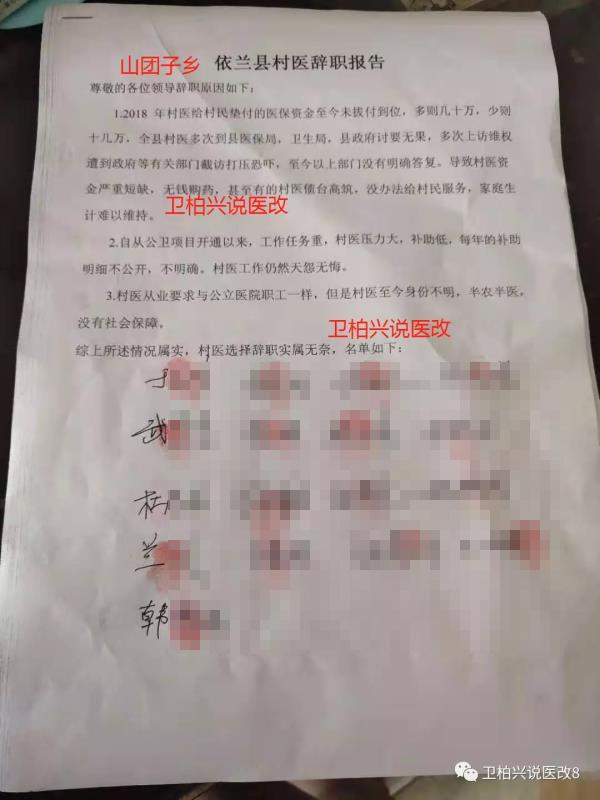 山团子乡 依兰县村医辞职报告
尊敬的各位领导辞职原因如下：
1.2018 年村医给村民垫付的医保资金至今未拨付到位，多则几十万，少则
十几万，全县村医多次到县医保局，卫生局，县政府讨要无果，多次上访维权
遭到政府等有关部门截访打压恐吓，至今以上部门没有明确答复。导致村医资
金严重短缺，无钱购药，甚至有的村医债台高筑，没办法给村民服务，家庭生
计难以维持。
卫柏兴说医改
2.自从公卫项目开通以来，工作任务重，村医压力大，补助低，每年的补助
明细不公开，不明确。村医工作仍然天怨无悔。
3.村医从业要求与公立医院职工一样，但是村医至今身份不明，半农半医，
没有社会保障。
卫柏兴说医改
综上所述情况属实，村医选择辞职实属无奈，名单如下：
于
武
兰
韩
卫柏兴说医改8